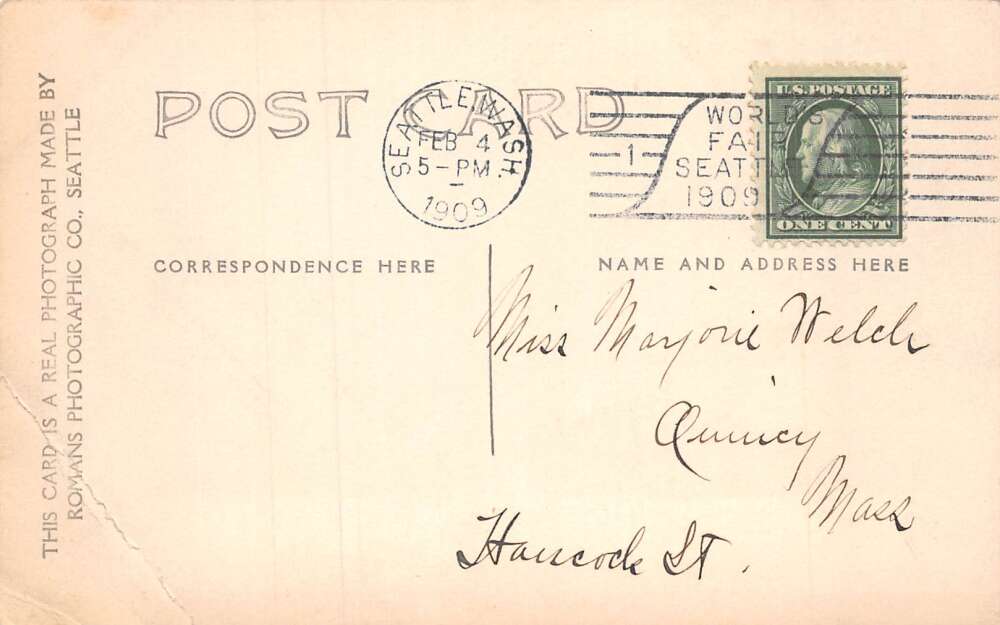 THIS CARD IS A REAL PHOTOGRAPH MADE BY
ROMANS PHOTOGRAPHIC CO., SEATTLE
POST CARD
SEATTLE, WASH.
FEB 4
5-PM
1909
1
WORLD'S
FAIR
SEATTLE
1909
U.S. POSTAGE
ONE CENT
CORRESPONDENCE HERE
NAME AND ADDRESS HERE
Miss Marjorie Welch
Quincy
Mass
Hancock St.